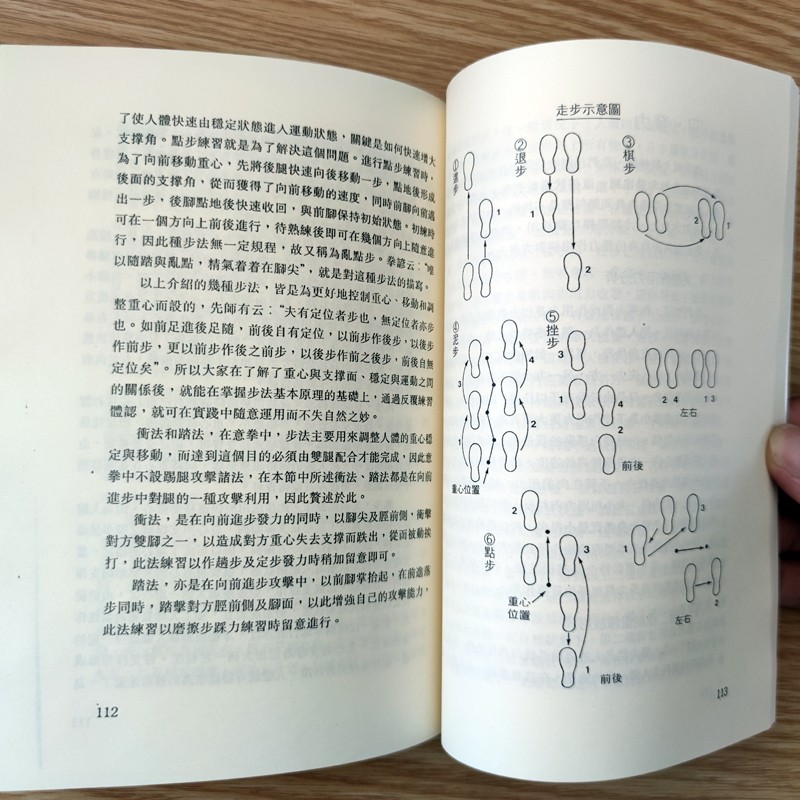 了使人體快速由穩定狀態進入運動狀態，關鍵是如何快速增大
支撐角。點步練習就是為了解決這個問題。進行點步練習時，
為了向前移動重心，先將後腿快速向後移動一步，點地後形成
後面的支撐角，從而獲得了向前移動的速度，同時前腳向前邁
出一步，後腳點地後快速收回，與前腳保持初始狀態。初練時
可在一個方向上前後進行，待熟練後即可在幾個方向上隨意進
行，因此種步法無一定規程，故又稱為亂點步。拳諺云：“唯
以隨踏與亂點，精氣着着在腳尖”，就是對這種步法的描寫。
以上介紹的幾種步法，皆是為更好地控制重心、移動和調
整重心而設的，先師有云：“夫有定位者步也，無定位者亦步
也。如前足進後足隨，前後自有定位，以前步作後步，以後步
作前步，更以前步作後之前步，以後步作前之後步，前後自無
定位矣”。所以大家在了解了重心與支撐面、穩定與運動之間
的關係後，就能在掌握步法基本原理的基礎上，通過反覆練習
體認，就可在實踐中隨意運用而不失自然之妙。
衝法和踏法，在意拳中，步法主要用來調整人體的重心穩
定與移動，而達到這個目的必須由雙腿配合才能完成，因此意
拳中不設踢腿攻擊諸法，在本節中所述衝法、踏法都是在向前
進步中對腿的一種攻擊利用，因此贅述於此。
衝法，是在向前進步發力的同時，以腳尖及脛前側，衝擊
對方雙腳之一，以造成對方重心失去支撐而跌出，從而被動挨
打，此法練習以作趟步及定步發力時稍加留意即可。
踏法，亦是在向前進步攻擊中，以前腳掌抬起，在前進落
步同時，踏擊對方脛前側及腳面，以此增強自己的攻擊能力，
此法練習以磨擦步踩力練習時留意進行。
112
走步示意圖
①進步
1
2
②退步
1
2
③棋步
2
1
④泥步
1
2
3
4
重心位置
⑤挫步
3
1
4
2
前後
2 4
1 3
左右
⑥點步
2
3
重心
位置
1
前後
1
3
2
左右
113